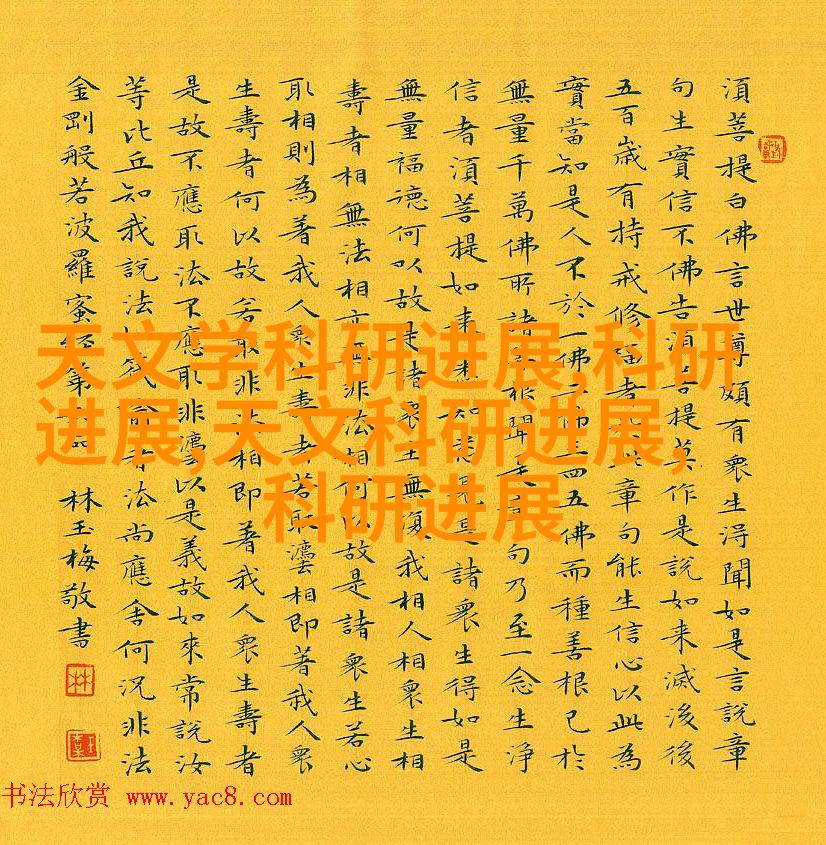 天文学科研进展,科研
进展,天文科研进展,
科研进展
須菩提白佛言世尊頗有衆生得聞如是言說章
句生實信不佛告須菩提莫作是說如来滅後後
五百歲有持戒修福者此章句能生信心以此為
實當知是人不於一佛二佛三四五佛而種善根已於
無量千萬佛所諸善根聞是章句乃至一念生淨
信者須菩提如来悉知悉見是諸衆生得如是
無量福德何以故是諸衆生無復我相人相衆生相
壽者相無法相亦無非法相何以故是諸衆生若心
取相則為著我人衆生壽者若取灋相即著我人衆
生壽者何以故若取非法相即著我人衆生壽者
是故不應取法不應取非灋以是義故如來常說汝
等比丘知我說法筏喻者法尚應舍何況非法
金剛般若波羅蜜經第品 林玉梅敬書
林
书法欣赏 www.yac8.com